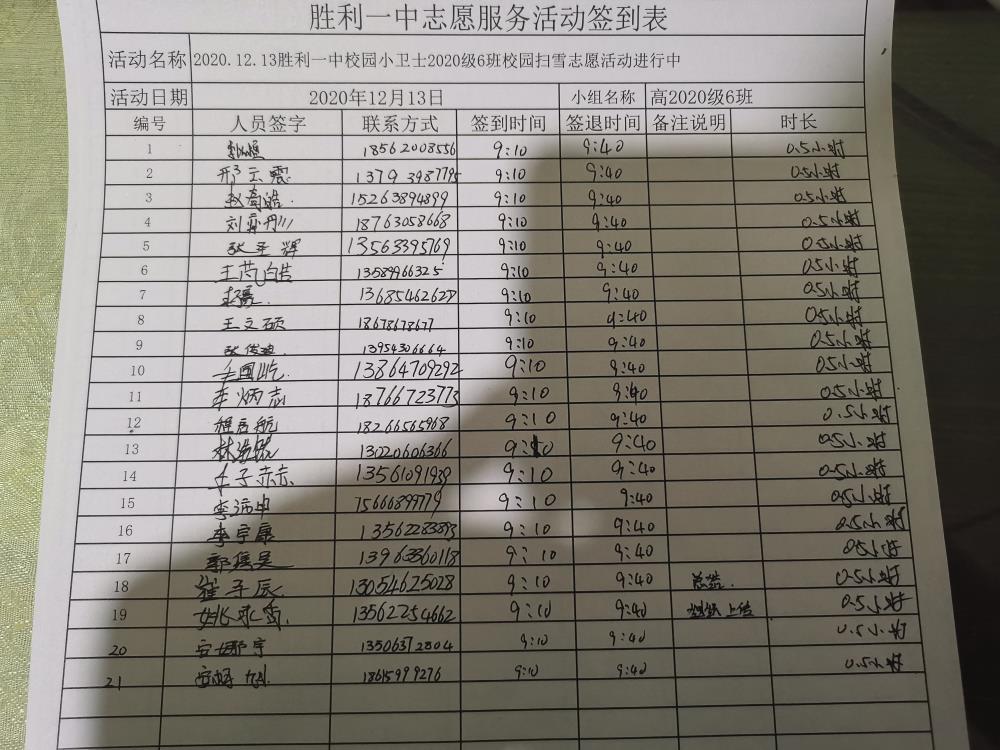 胜利一中志愿服务活动签到表
活动名称 2020.12.13胜利一中校园小卫士2020级6班校园扫雪志愿活动进行中
活动日期 2020年12月13日 小组名称 高2020级6班
编号 人员签字 联系方式 签到时间 签退时间 备注说明 时长
1 18562008556 9:10 9:40 0.5小时
2 邢云震 9:10 9:40 0.5小时
3 15263894899 9:10 9:40 0.5小时
4 18763058668 9:10 9:40 0.5小时
5 13563395769 9:10 9:40 0.5小时
6 13589966325 9:10 9:40 0.5小时
7 9:10 9:40 0.5小时
8 王文硕 18678678677 9:10 9:40 0.5小时
9 13954306664 9:10 9:40 0.5小时
10 13864709292 9:10 9:40 0.5小时
11 李炳志 18766723773 9:10 9:40 0.5小时
12 程启航 18266565968 9:10 9:40 0.5小时
13 13020606366 9:10 9:40 0.5小时
14 9:10 9:40 0.5小时
15 9:10 9:40 0.5小时
16 李宇康 9:10 9:40 0.5小时
17 13963360118 9:10 9:40 0.5小时
18 崔子辰 13054625028 9:10 9:40 总结. 0.5小时
19 13562254662 9:10 9:40 上传 0.5小时
20 13506372804 9:10 9:40 0.5小时
21 18615999276 9:10 9:40 0.5小时